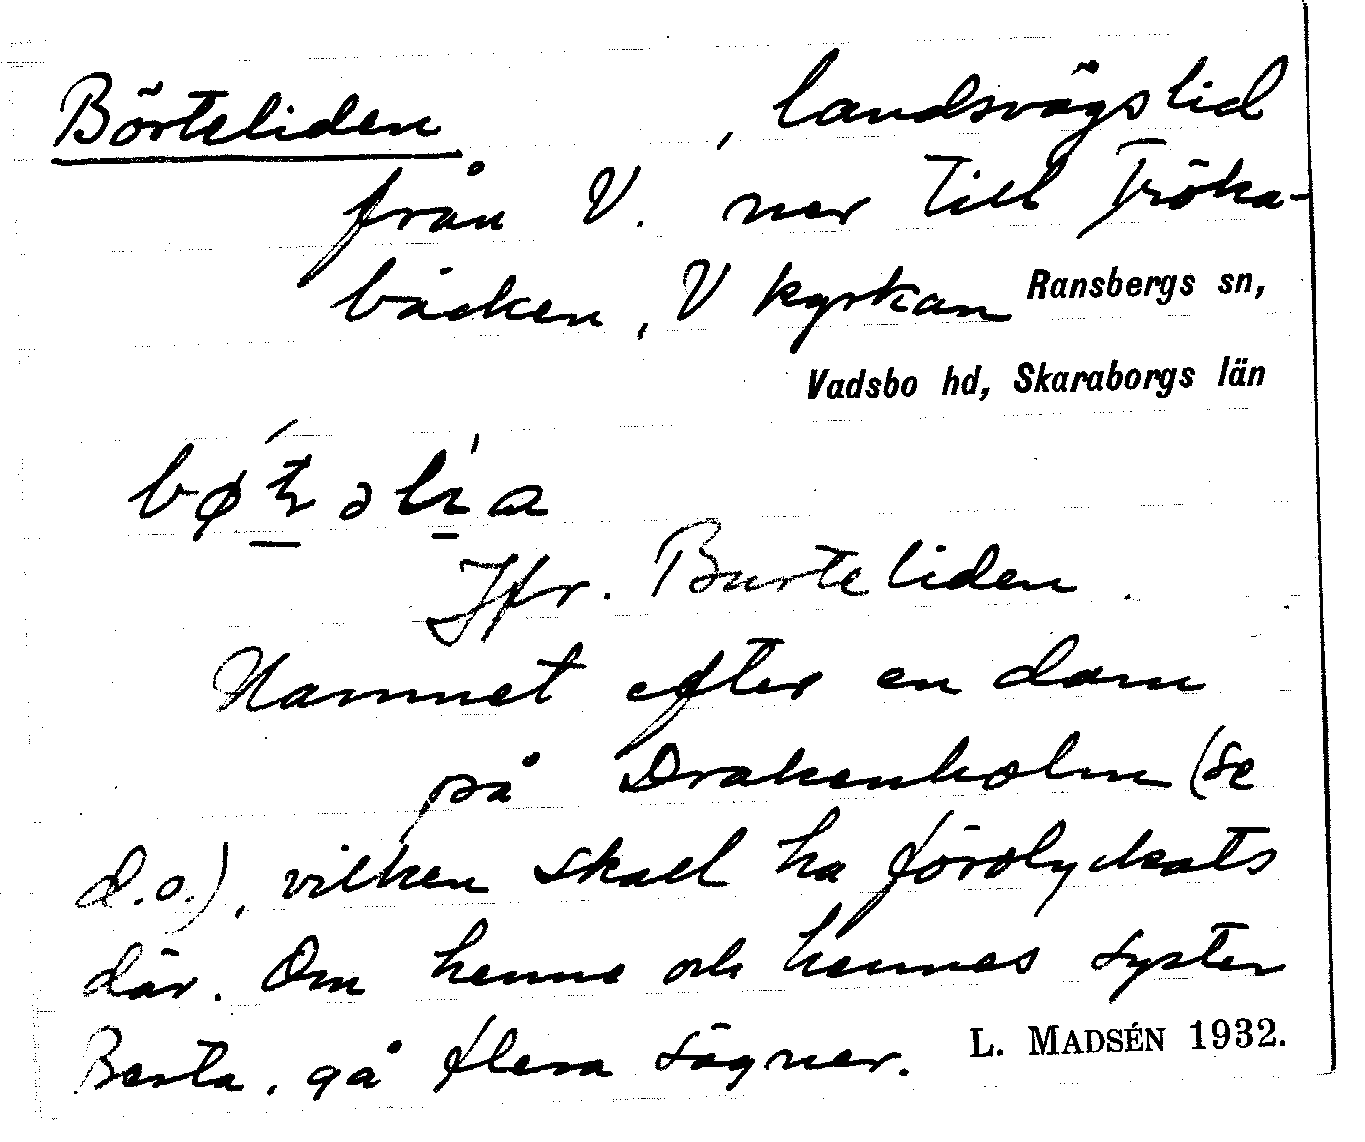 Börteliden , landsvägslid
från V. ner till Tröka-
bäcken, V kyrkan Ransbergs sn,
Vadsbo hd, Skaraborgs län
Jfr. Burteliden.
Namnet efter en dam
på Drakenholm (se
d.o.), vilken skall ha förolyckats
där. Om henne och hennes syster
Berta, gå flera sägner. L. MADSÉN 1932.